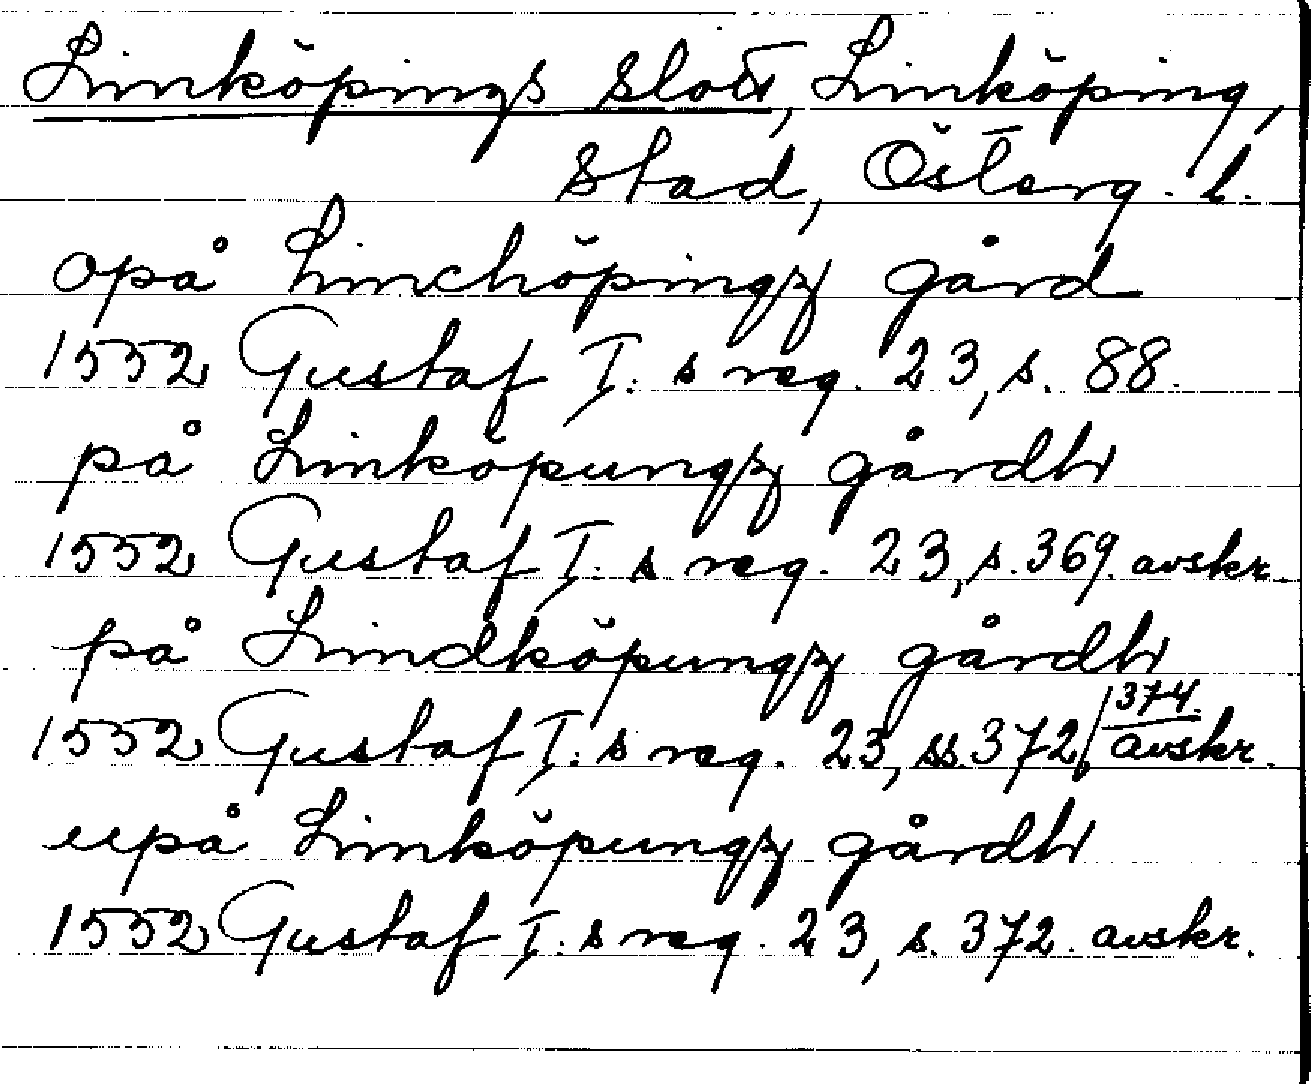 Linköpings slott, Linköping,
stad, Österg. l.
opå Linchöpingz gård
1552 Gustaf I:s reg. 23, s. 88.
på Linköpungz gårdh
1552 Gustaf I:s reg. 23, s. 369. avskr.
på Lindköpungz gårdh
1552 Gustaf I:s reg. 23, ss. 372, 374. avskr.
upå Linköpungz gårdh
1552 Gustaf I:s reg. 23, s. 372. avskr.